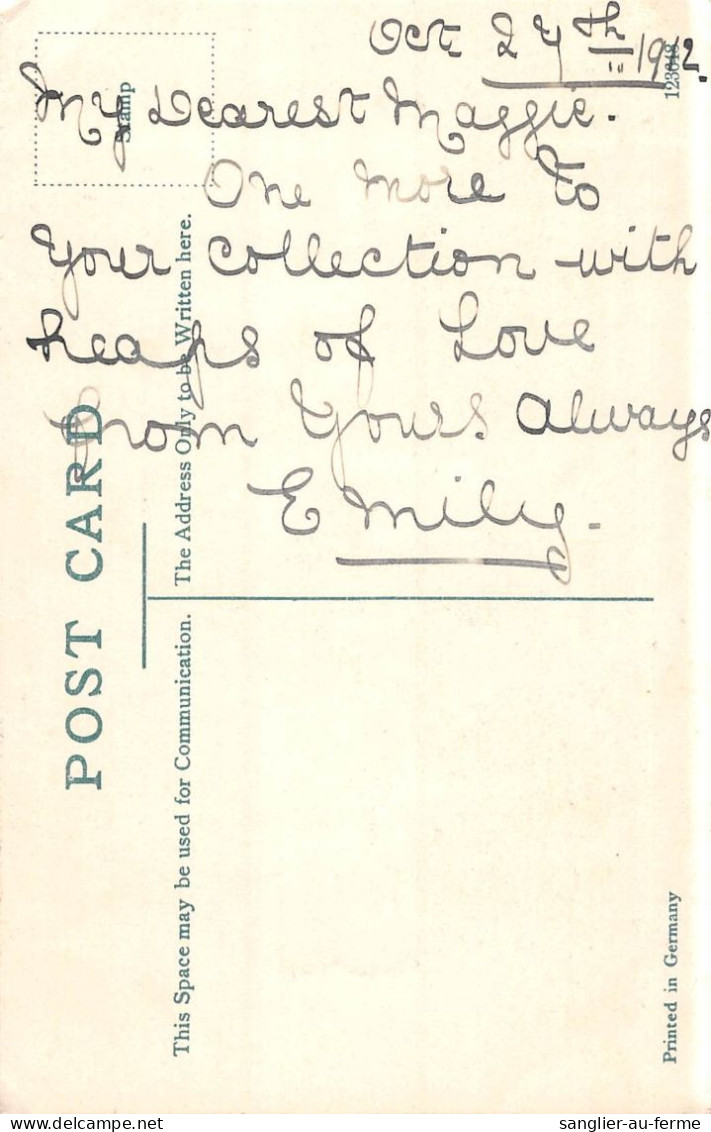 Oct 24th 1912.
My Dearest Maggie.
One more to
Your collection with
heaps of Love
from Yours Always
Emily.
Stamp
POST CARD
The Address Only to be Written here.
This Space may be used for Communication.
Printed in Germany
Delcampe.net
sanglier-au-ferme